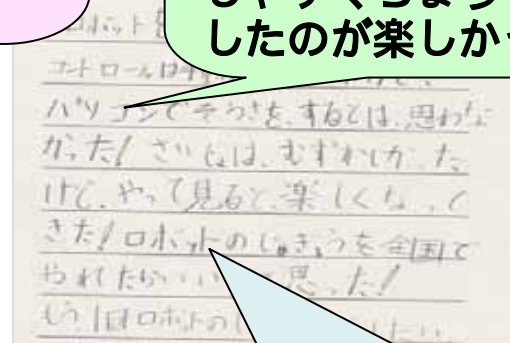 しやすくちょう
したのが楽しかっ
ロボットを
コントロールはす
パソコンでそうさを、するとは、思わな
かった！さいしょは、むずかしかった
けど、やって見ると、楽しくなって
きた！ロボットのじゅぎょうを全国で
やれたらいいと思った！
もう1回ロボットの したい